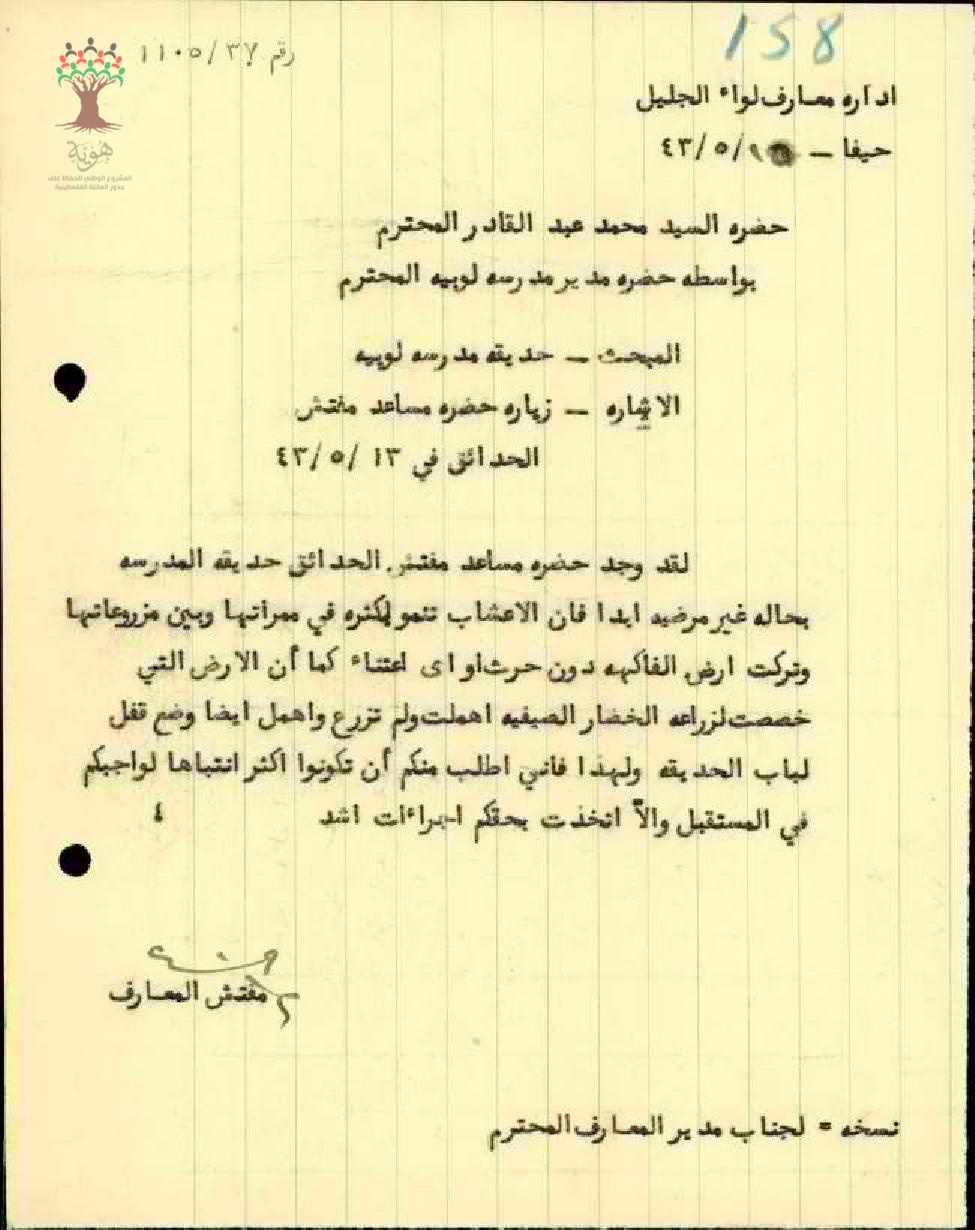 158
رقم ١١٠٥/٣٧
هُويَّة
المشروع الوطني للحفاظ على
جذور العائلة الفلسطينية
اداره معارف لواء الجليل
حيفا — /٥/٤٣
حضره السيد محمد عبد القادر المحترم
بواسطه حضره مدير مدرسه لوبيه المحترم
المبحث — حديقه مدرسه لوبيه
الاشاره — زياره حضره مساعد مفتش
الحدائق في ١٣ /٥/٤٣
لقد وجد حضره مساعد مفتش الحدائق حديقه المدرسه
بحاله غير مرضيه ابدا فان الاعشاب تنمو بكثره في ممراتها وبين مزروعاتها
وتركت ارض الفاكهه دون حرث او اى اعتناء كما أن الارض التي
خصصت لزراعه الخضار الصيفيه اهملت ولم تزرع واهمل ايضا وضع قفل
لباب الحديقه ولهذا فاني اطلب منكم أن تكونوا اكثر انتباها لواجبكم
في المستقبل والاّ اتخذت بحقكم اجراءات اشد ٤
مفتش المعارف
نسخه = لجناب مدير المعارف المحترم